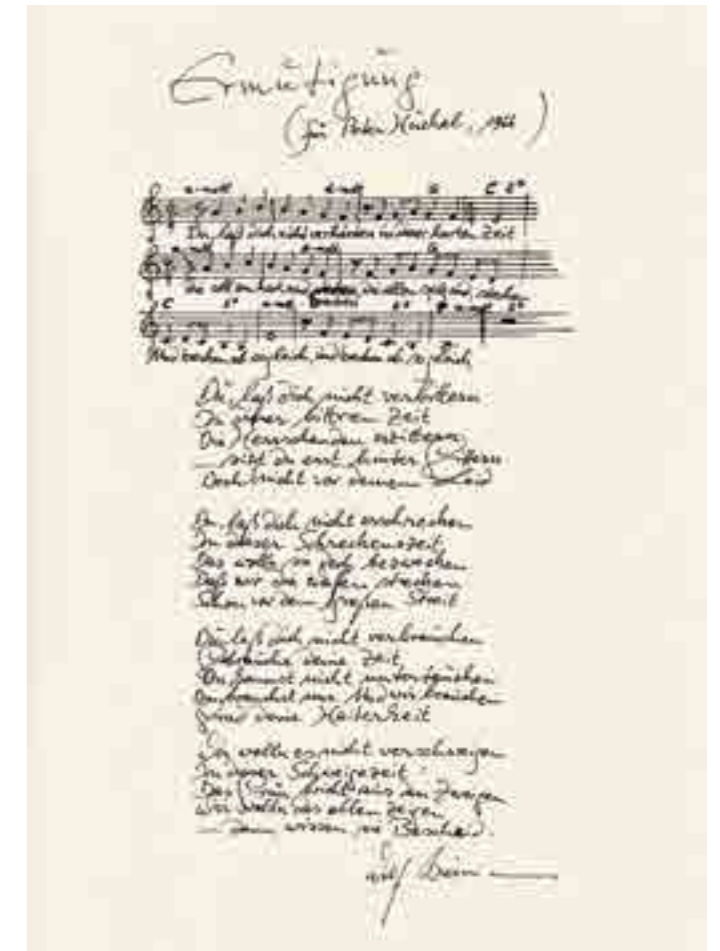 Ermutigung
(für Peter Huchel, 1966)
a-moll d-moll G C E⁷
Du, laß dich nicht verhärten in dieser harten Zeit
die all zu hart sind brechen, die all zu spitz sind, stechen
und brechen ab sogleich, und brechen ab sogleich
Du, laß dich nicht verbittern
In dieser bittren Zeit
Die Herrschenden erzittern
– sitzt du erst hinter Gittern
Doch nicht vor deinem Leid
Du, laß dich nicht erschrecken
In dieser Schreckenszeit
Das wolln sie doch bezwecken
Daß wir die Waffen strecken
Schon vor dem großen Streit
Du, laß dich nicht verbrauchen
Gebrauche deine Zeit
Du kannst nicht untertauchen
Du brauchst uns und wir brauchen
Grad deine Heiterkeit
Wir wolln es nicht verschweigen
In dieser Schweigezeit
Das Grün bricht aus den Zweigen
Wir wolln das allen zeigen
– dann wissen sie Bescheid.